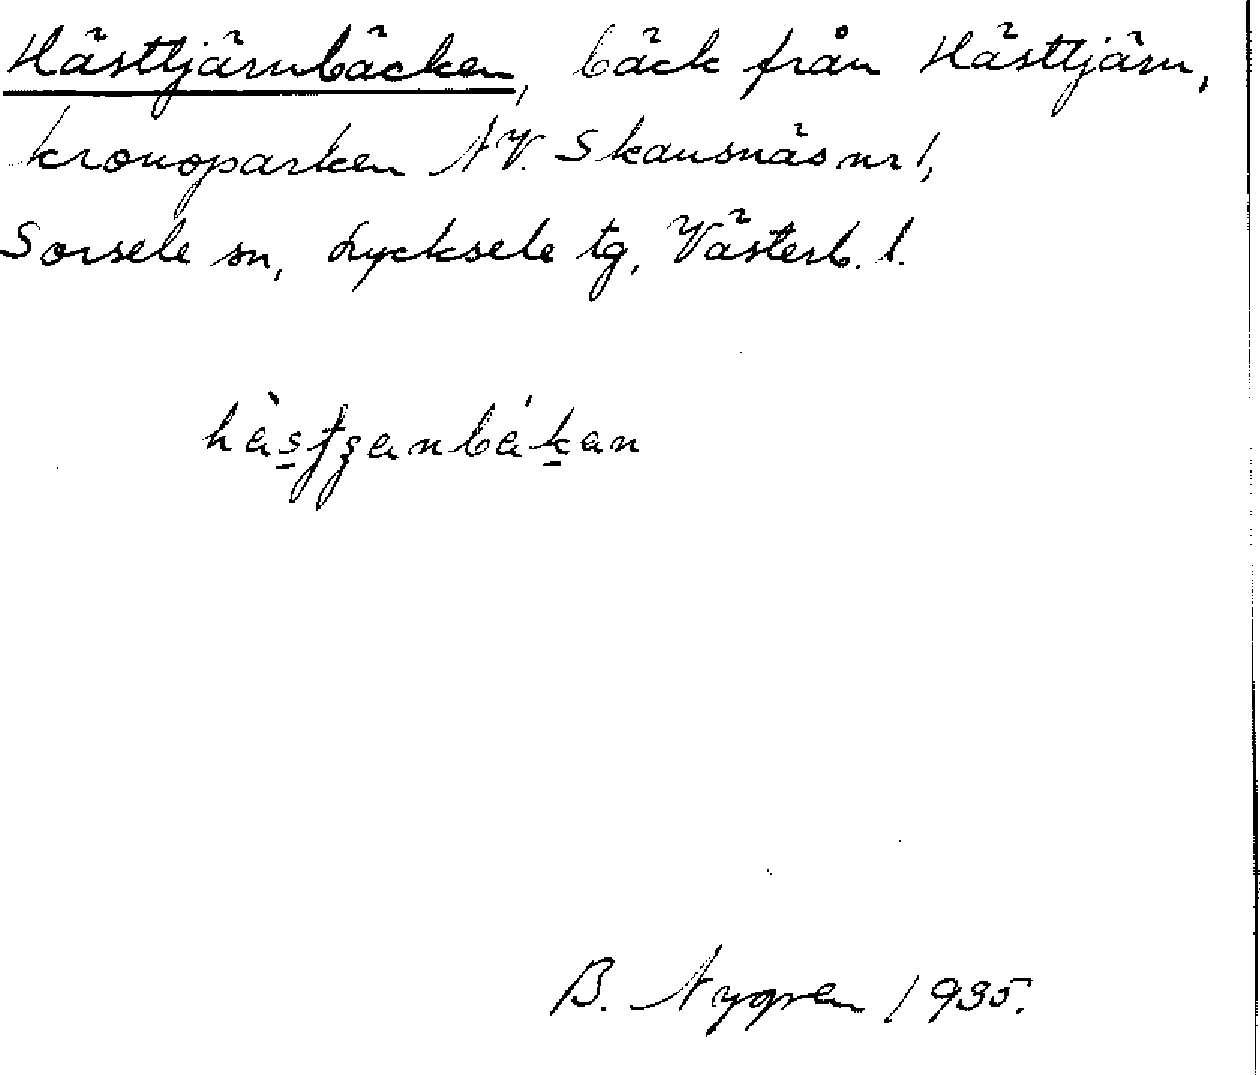 Hästtjärnbäcken, bäck från Hästtjärn,
kronoparken N.V. Skansnäs nr 1,
Sorsele sn, Lycksele tg, Västerb. l.
B. Nygren 1935.